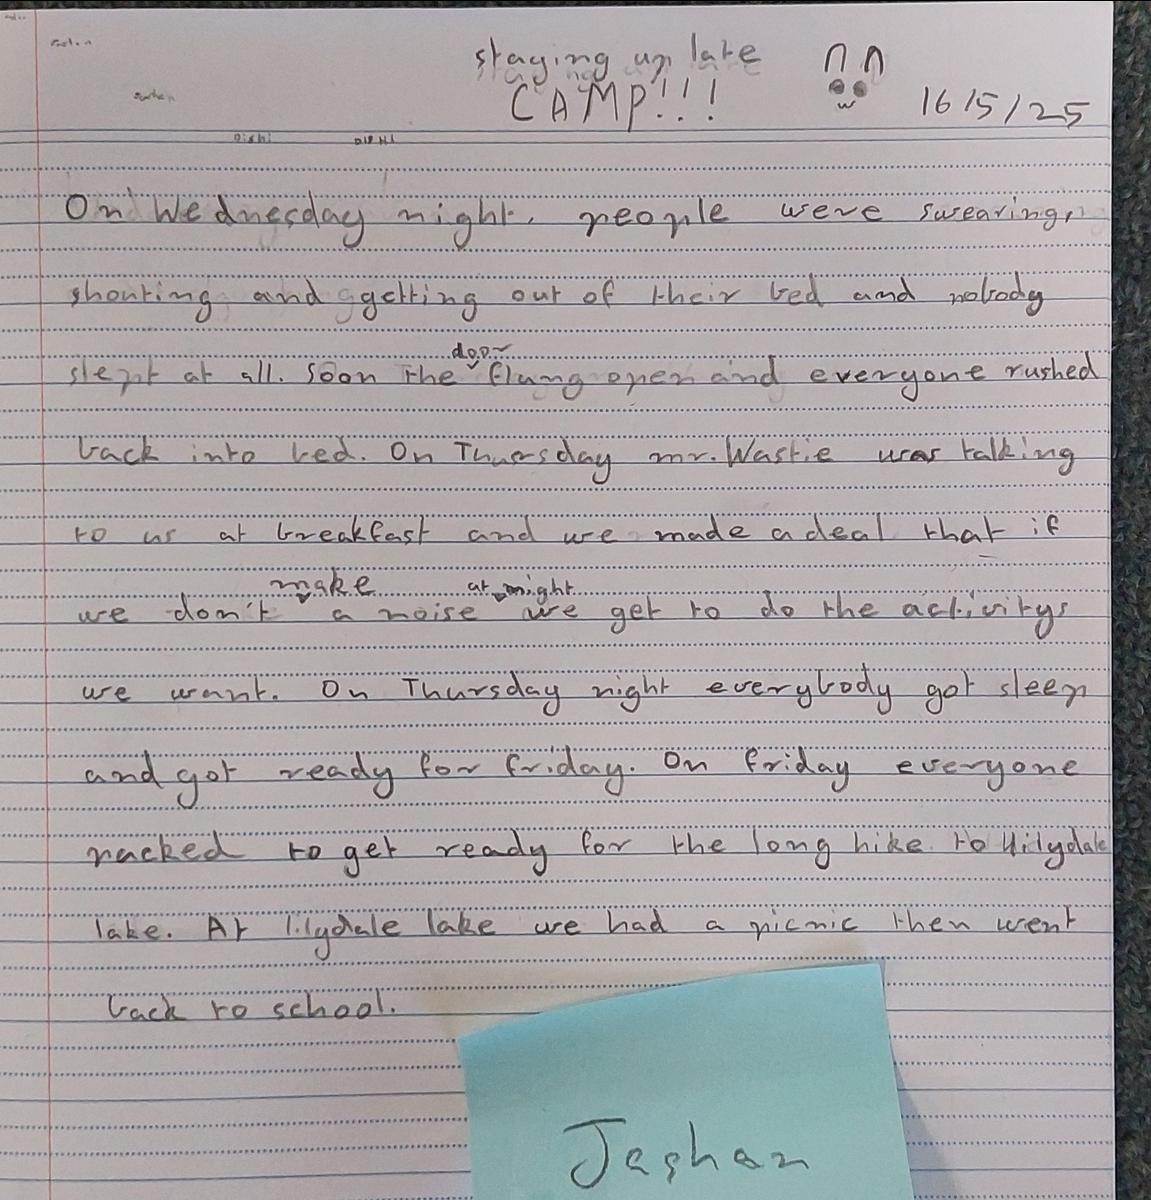 staying up late
CAMP!!!
16/5/25
On Wednesday night, people were swearing,
shouting and getting out of their bed and nobody
slept at all. Soon the door flung open and everyone rushed
back into bed. On Thursday mr. Wastie was talking
to us at breakfast and we made a deal that if
we don't make a noise at night we get to do the activitys
we want. On Thursday night everybody got sleep
and got ready for friday. On friday everyone
packed to get ready for the long hike to lilydale
lake. At lilydale lake we had a picnic then went
back to school.
Jashan